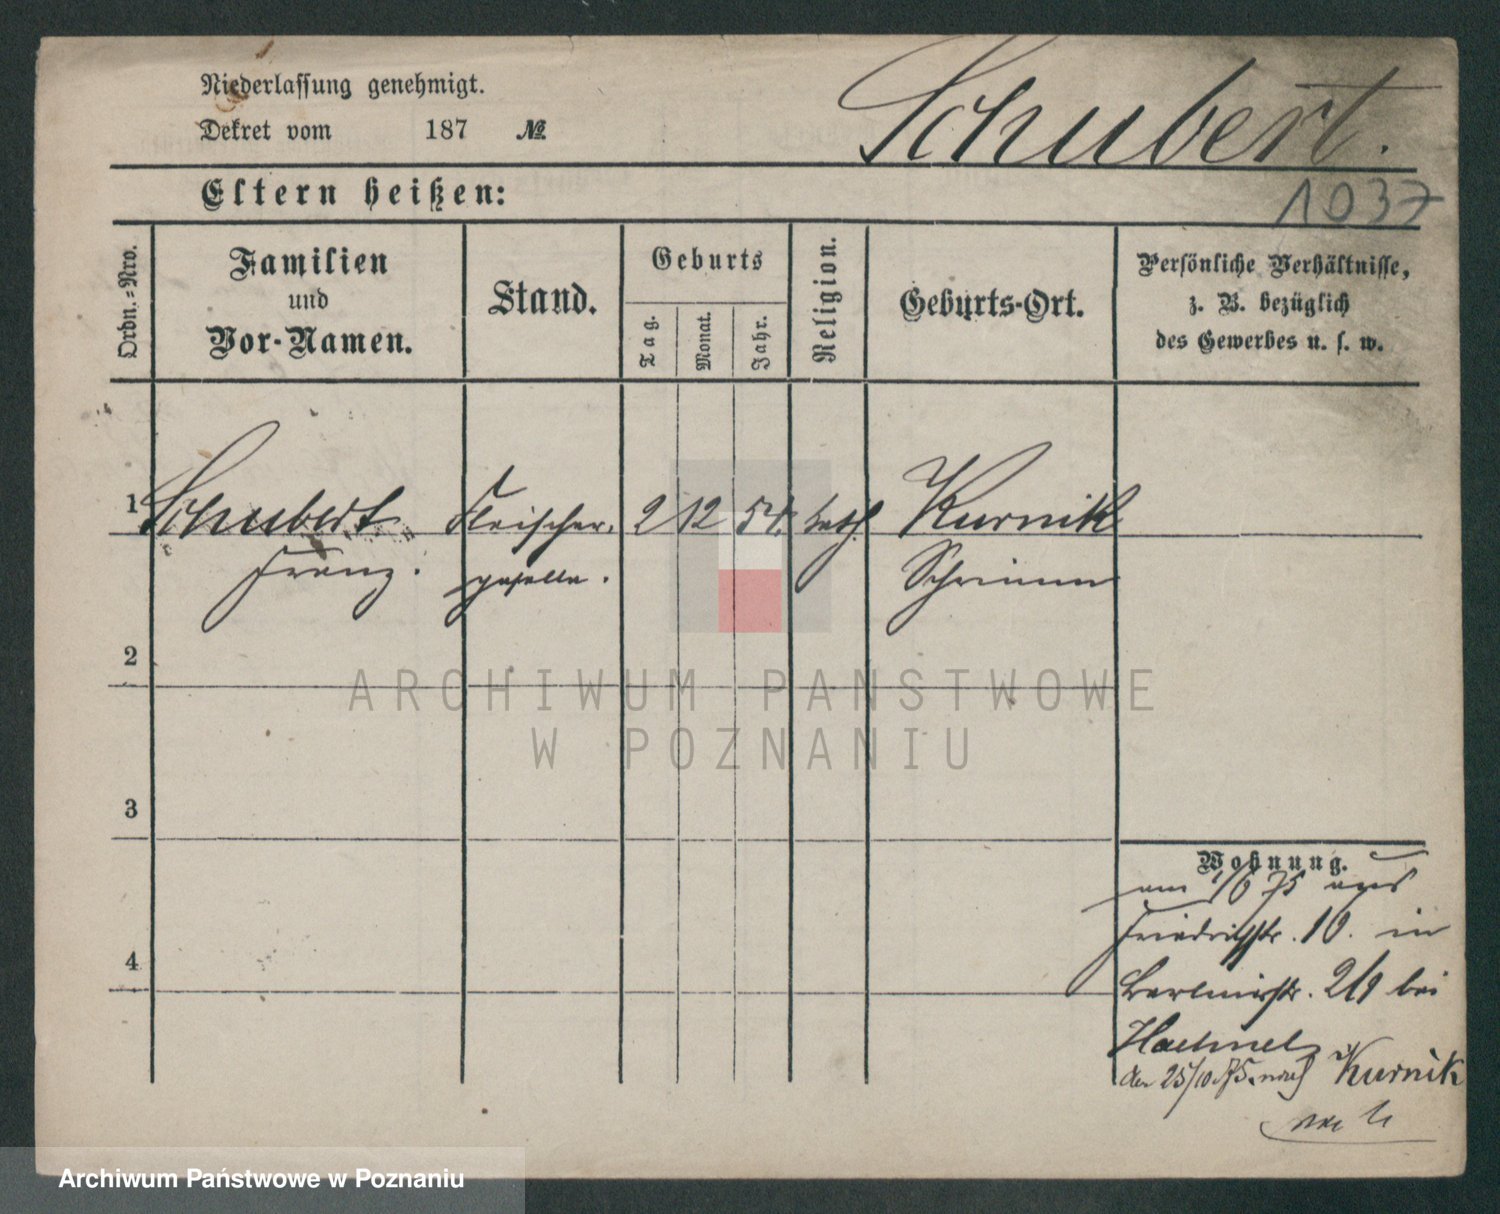 Niederlassung genehmigt.
Dekret vom 187 №
Schubert.
Eltern heißen:
1037
Ordn.-Nro.
Familien
und
Vor-Namen.
Stand.
Geburts
Tag.
Monat.
Jahr.
Religion.
Geburts-Ort.
Persönliche Verhältnisse,
z. B. bezüglich
des Gewerbes u. s. w.
1 Schubert Fleischer. 2 12 54. kath. Kurnik
Franz. geselle. Schrimm
2
3
4
Wohnung.
am 1/6 75 aus
Friedrichstr. 10. in
Berlinerstr. bei
den 25/10 75. nach Kurnik
ARCHIWUM PAŃSTWOWE
W POZNANIU
Archiwum Państwowe w Poznaniu